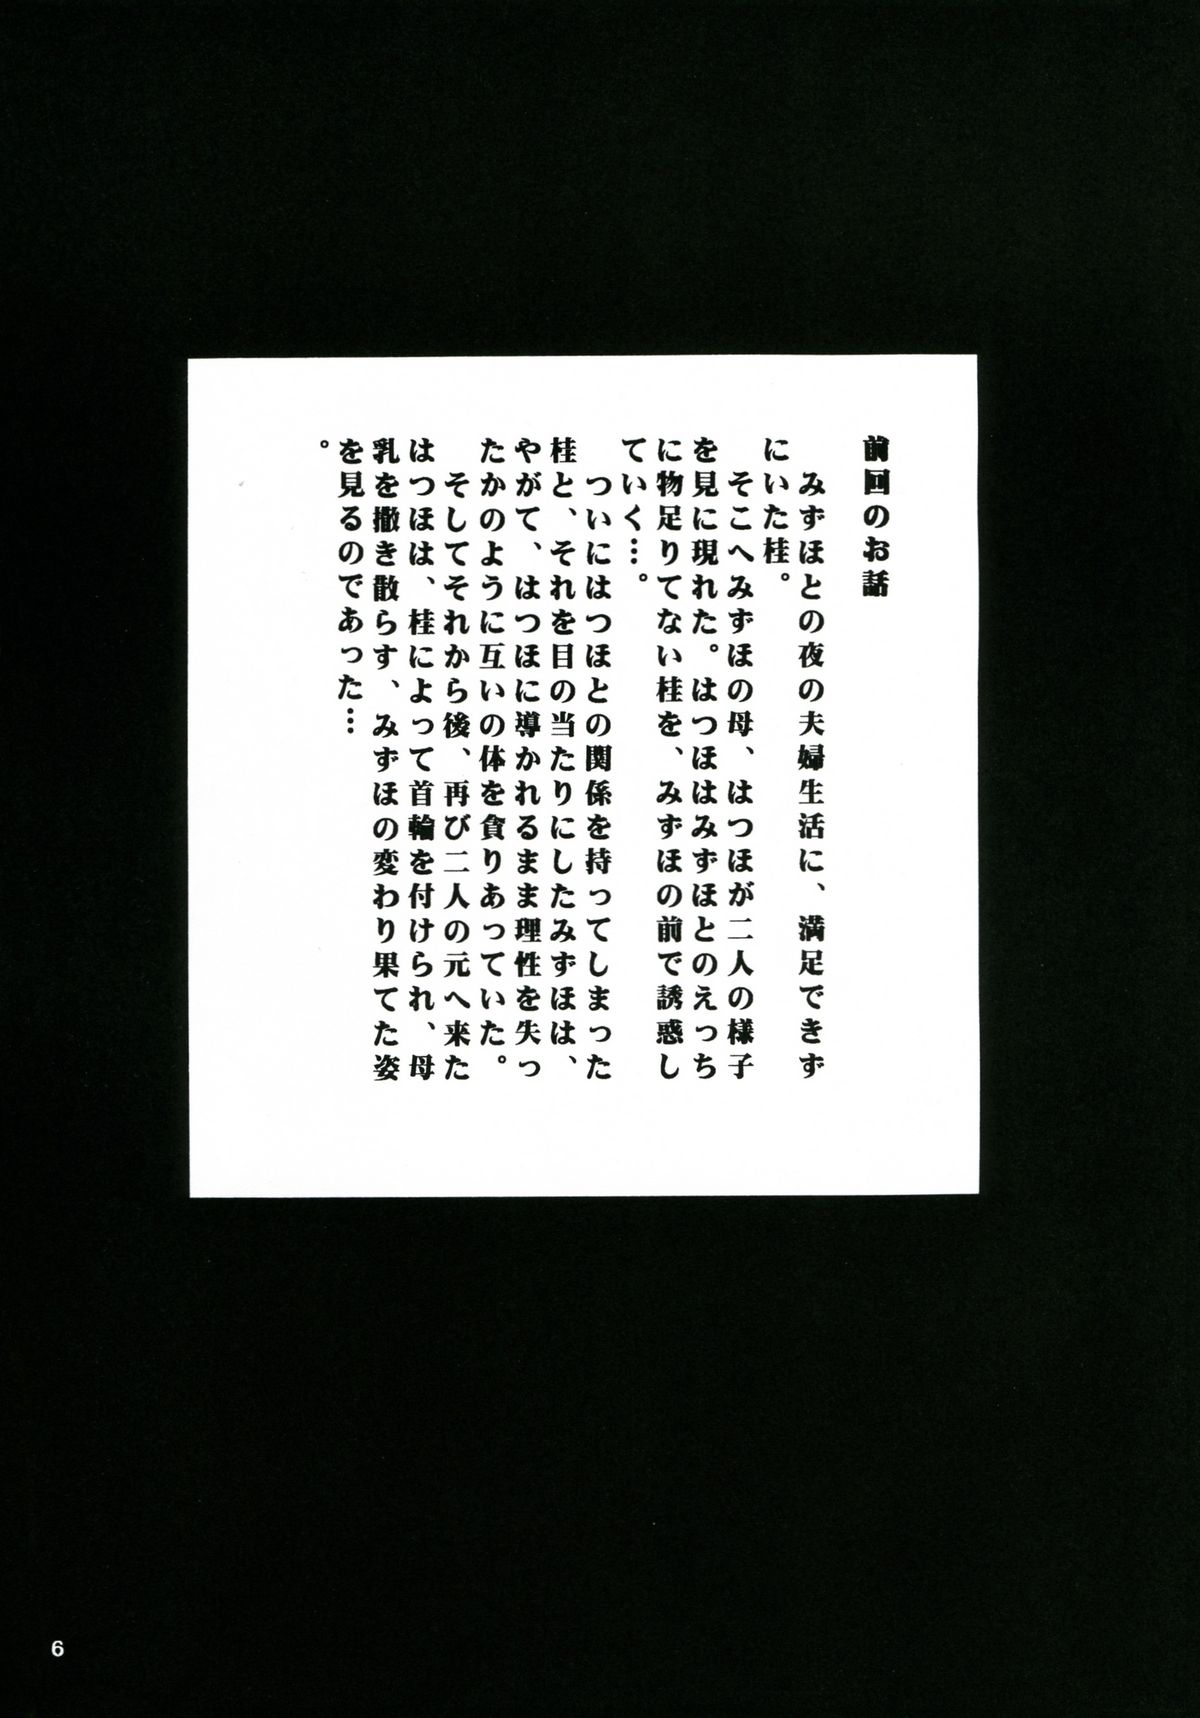 前回のお話
みずほとの夜の夫婦生活に、満足できず
にいた桂。
そこへみずほの母、はつほが二人の様子
を見に現れた。はつほはみずほとのえっち
に物足りてない桂を、みずほの前で誘惑し
ていく…。
ついにはつほとの関係を持ってしまった
桂と、それを目の当たりにしたみずほは、
やがて、はつほに導かれるまま理性を失っ
たかのように互いの体を貪りあっていた。
そしてそれから後、再び二人の元へ来た
はつほは、桂によって首輪を付けられ、母
乳を撒き散らす、みずほの変わり果てた姿
を見るのであった…
。
6